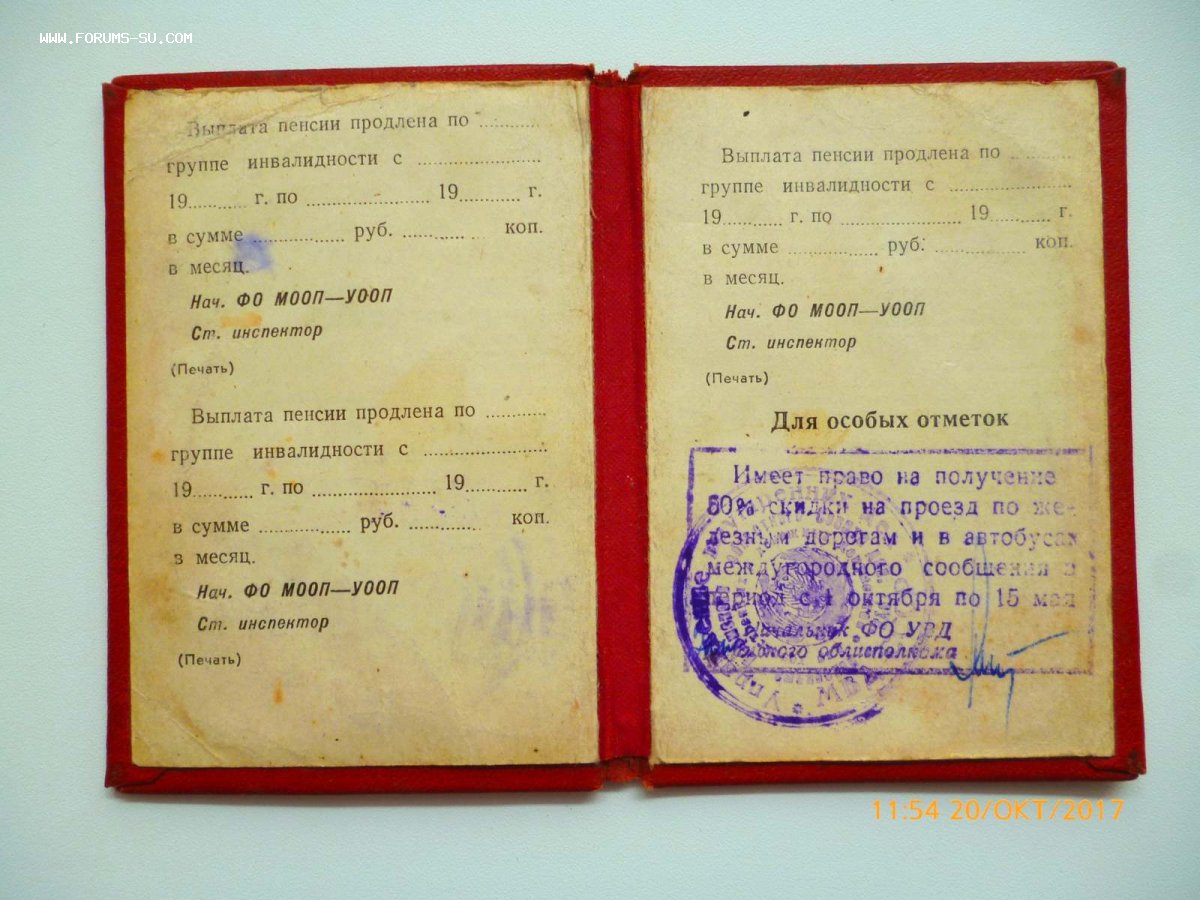 WWW.FORUMS-SU.COM
Выплата пенсии продлена по ............
группе инвалидности с ......................
19........... г. по ...................... 19........... г.
в сумме ................ руб. ........... коп.
в месяц.
Нач. ФО МООП—УООП
Ст. инспектор
(Печать)
Выплата пенсии продлена по ............
группе инвалидности с ......................
19........... г. по ...................... 19........... г.
в сумме ................ руб. ........... коп.
в месяц.
Нач. ФО МООП—УООП
Ст. инспектор
(Печать)
Выплата пенсии продлена по ............
группе инвалидности с ......................
19........... г. по ...................... 19........... г.
в сумме ................ руб. ................ коп.
в месяц.
Нач. ФО МООП—УООП
Ст. инспектор
(Печать)
Для особых отметок
Имеет право на получение
50% скидки на проезд по же-
лезным дорогам и в автобусах
междугородного сообщения в
период с 1 октября по 15 мая
Начальник ФО УВД
облисполкома
11:54 20/ОКТ/2017